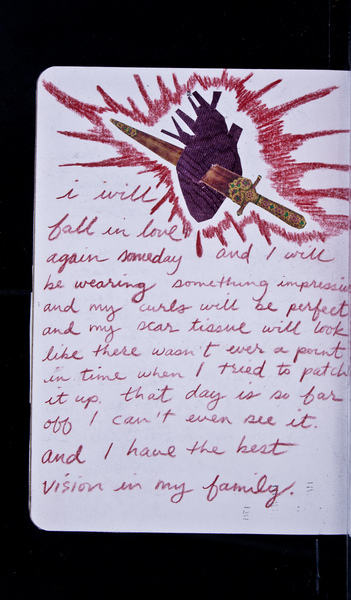 i will
fall in love
again someday and I will
be wearing something impressive
and my curls will be perfect
and my scar tissue will look
like there wasn't ever a point
in time when I tried to patch
it up. that day is so far
off I can't even see it.
and I have the best
vision in my family.